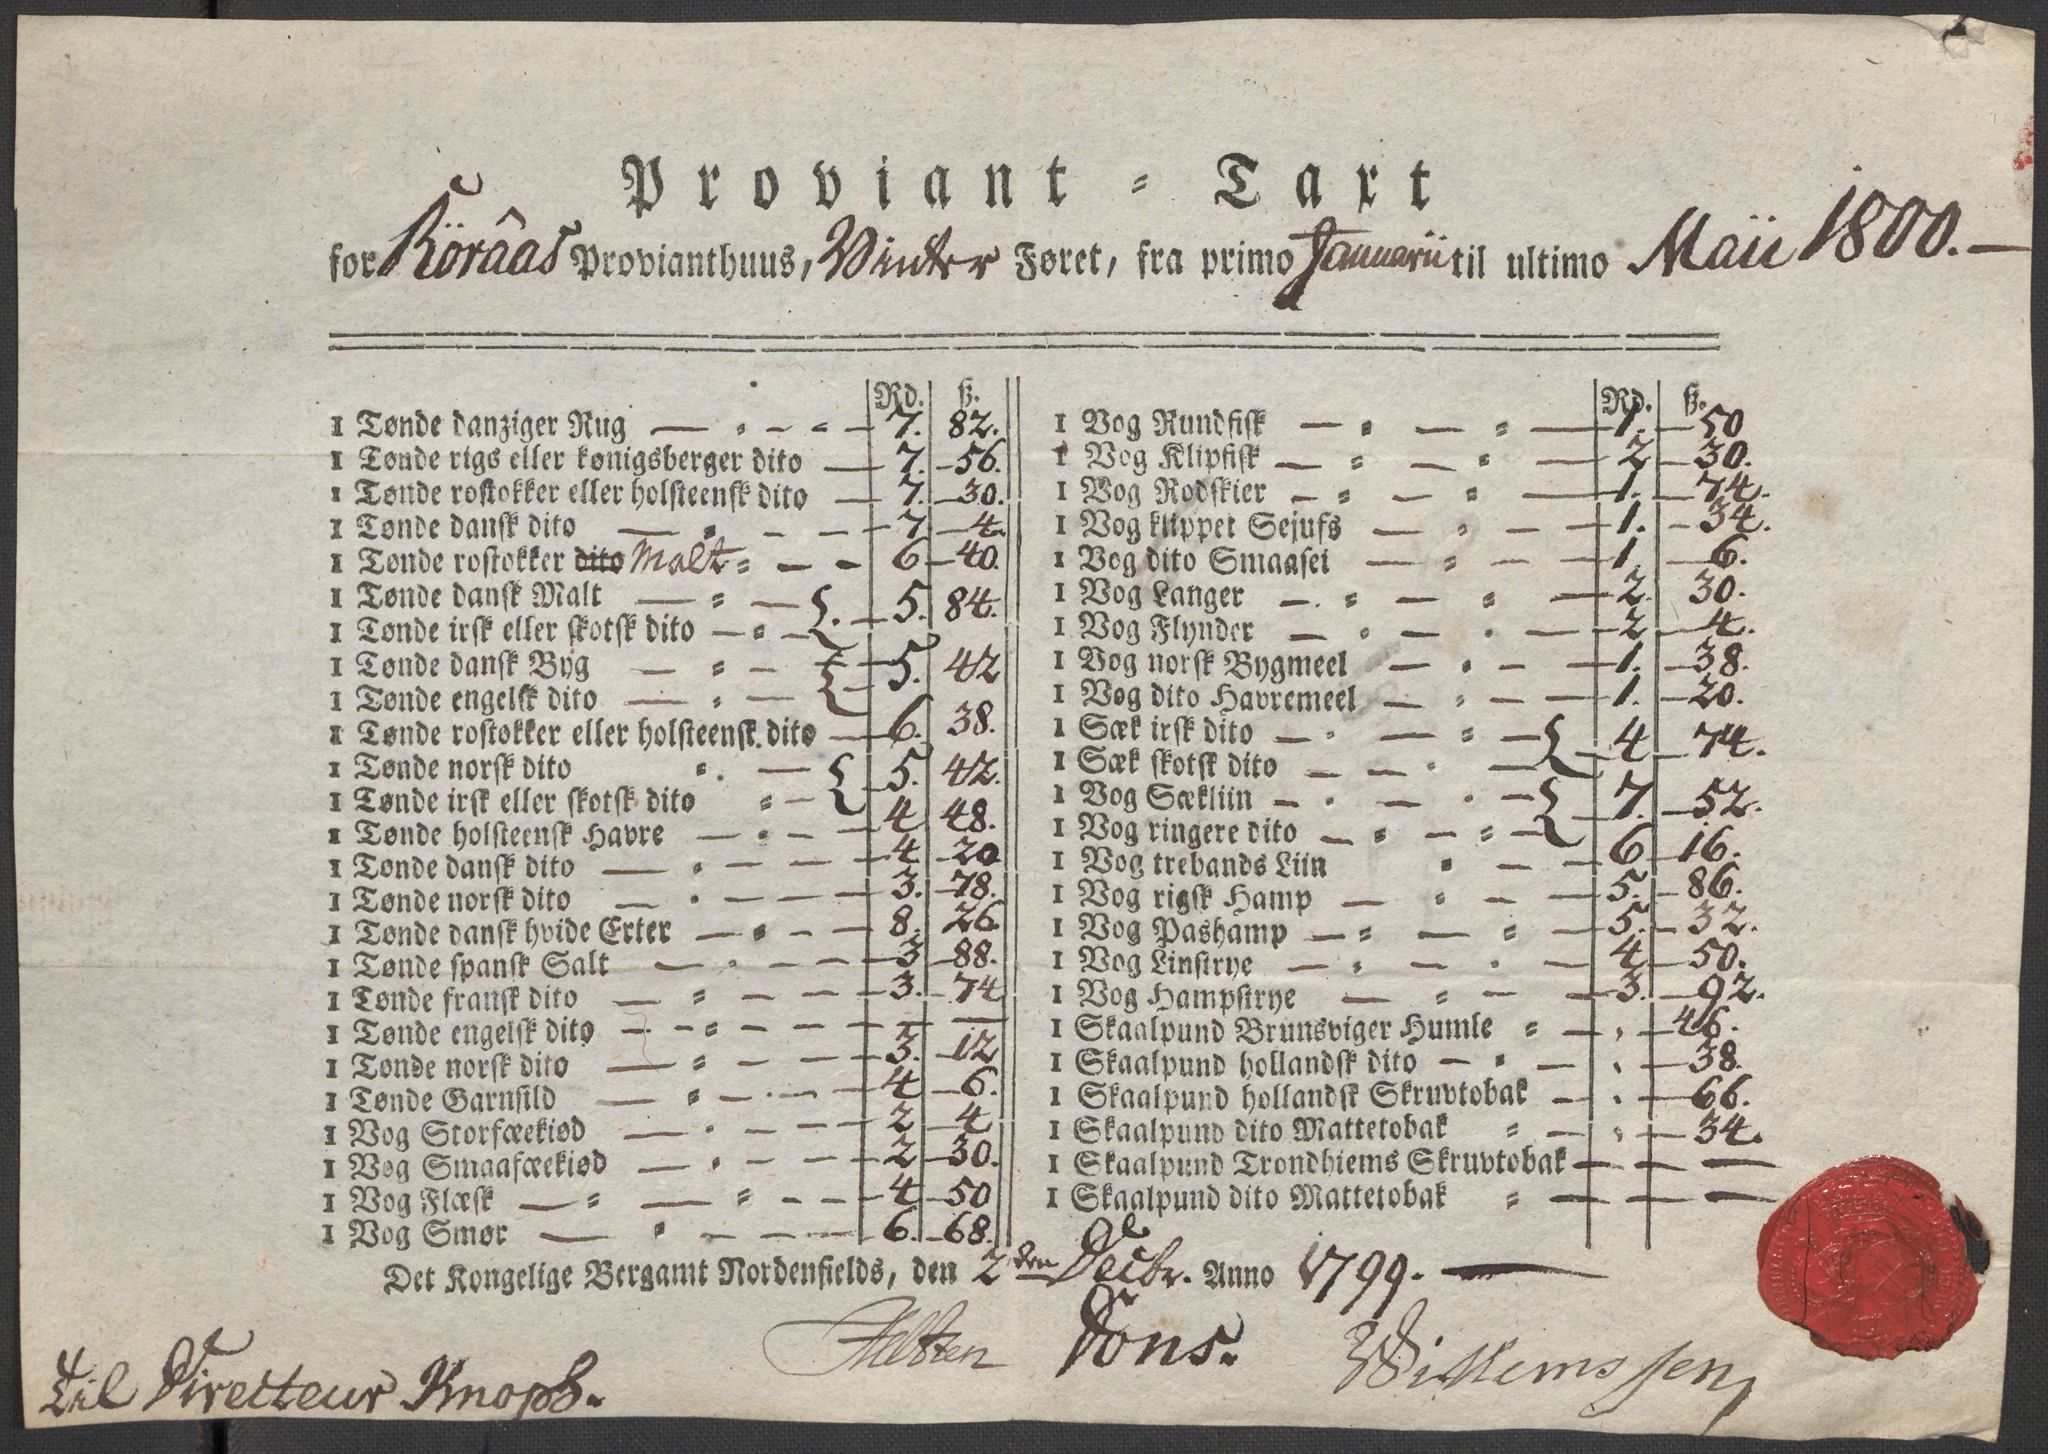 Proviant-Taxt
for Röraas Provianthuus, Winter Føret, fra primo Januarii til ultimo Maii 1800.
Rd. ß.
1 Tønde danziger Rug 7. 82.
1 Tønde rigs eller kønigsberger dito 7. 56.
1 Tønde rostokker eller holsteensk dito 7. 30.
1 Tønde dansk dito 7 4.
1 Tønde rostokker dito Malt 6 40.
1 Tønde dansk Malt 5. 84.
1 Tønde irsk eller skotsk dito
1 Tønde dansk Byg 5. 42
1 Tønde engelsk dito
1 Tønde rostokker eller holsteensk dito 6. 38.
1 Tønde norsk dito 5. 42.
1 Tønde irsk eller skotsk dito
1 Tønde holsteensk Havre 4 48.
1 Tønde dansk dito 4. 20
1 Tønde norsk dito 3. 78.
1 Tønde dansk hvide Erter 8. 26.
1 Tønde spansk Salt 3 88.
1 Tønde fransk dito 3. 74
1 Tønde engelsk dito — —
1 Tønde norsk dito 3. 12
1 Tønde Garnsild 4 6.
1 Vog Storfæekiød 2 4
1 Vog Smaafæekiød 2 30.
1 Vog Flæsk 4 50
1 Vog Smør 6. 68.
Rd. ß.
1 Vog Rundfisk 1. 50
1 Vog Klipfisk 2 30.
1 Vog Rodskier 1. 74.
1 Vog klippet Sejufs 1. 34.
1 Vog dito Smaasei 1 6.
1 Vog Langer 2. 30.
1 Vog Flynder 2 4.
1 Vog norsk Bygmeel 1. 38.
1 Vog dito Havremeel 1. 20.
1 Sæk irsk dito 4 74.
1 Sæk skotsk dito
1 Vog Sækliin 7. 52.
1 Vog ringere dito
1 Vog trebands Liin 6 16.
1 Vog rigsk Hamp 5. 86.
1 Vog Pashamp 5. 32.
1 Vog Linstrye 4 50.
1 Vog Hampstrye 3. 92.
1 Skaalpund Brunsviger Humle 46.
1 Skaalpund hollandsk dito 38.
1 Skaalpund hollandsk Skruvtobak 66.
1 Skaalpund dito Mattetobak 34.
1 Skaalpund Trondhiems Skruvtobak — —
1 Skaalpund dito Mattetobak — —
Det Kongelige Bergamt Nordenfields, den 2den Decbr. Anno 1799.
Dons.
til Directeur Knoph.